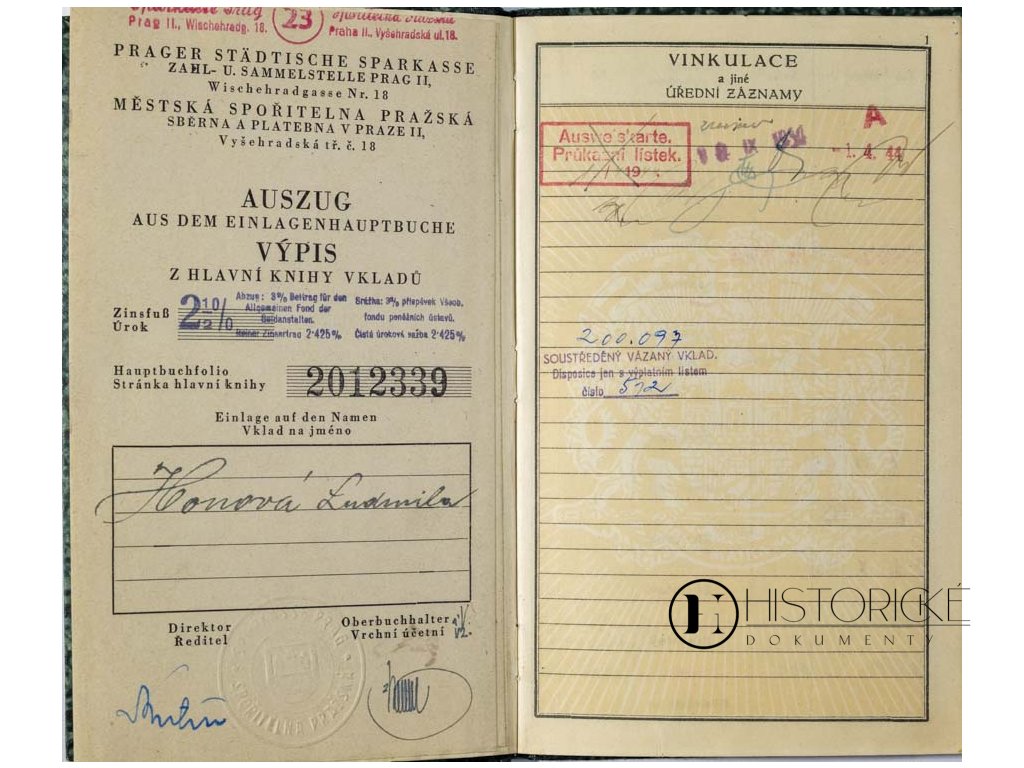 Prag II., Wischehradg. 18.
23
Praha II., Vyšehradská ul. 18.
PRAGER STÄDTISCHE SPARKASSE
ZAHL- U. SAMMELSTELLE PRAG II,
Wischehradgasse Nr. 18
MĚSTSKÁ SPOŘITELNA PRAŽSKÁ
SBĚRNA A PLATEBNA V PRAZE II,
Vyšehradská tř. č. 18
AUSZUG
AUS DEM EINLAGENHAUPTBUCHE
VÝPIS
Z HLAVNÍ KNIHY VKLADŮ
Zinsfuß
Úrok
2 10/2 %
Abzug: 3% Beitrag für den
Allgemeinen Fond der
Geldanstalten.
Reiner Zinsertrag 2·425%
Srážka: 3% příspěvek Všeob.
fondu peněžních ústavů.
Čistá úroková sazba 2·425%
Hauptbuchfolio
Stránka hlavní knihy
2012339
Einlage auf den Namen
Vklad na jméno
Honová Ludmila
Direktor
Ředitel
Oberbuchhalter
Vrchní účetní
1
VINKULACE
a jiné
ÚŘEDNÍ ZÁZNAMY
Ausweiskarte.
Průkazní lístek.
A
-1. 4. 44
200.097
SOUSTŘEDĚNÝ VÁZANÝ VKLAD.
Disposice jen s výplatním listem
číslo 512
HISTORICKÉ
DOKUMENTY